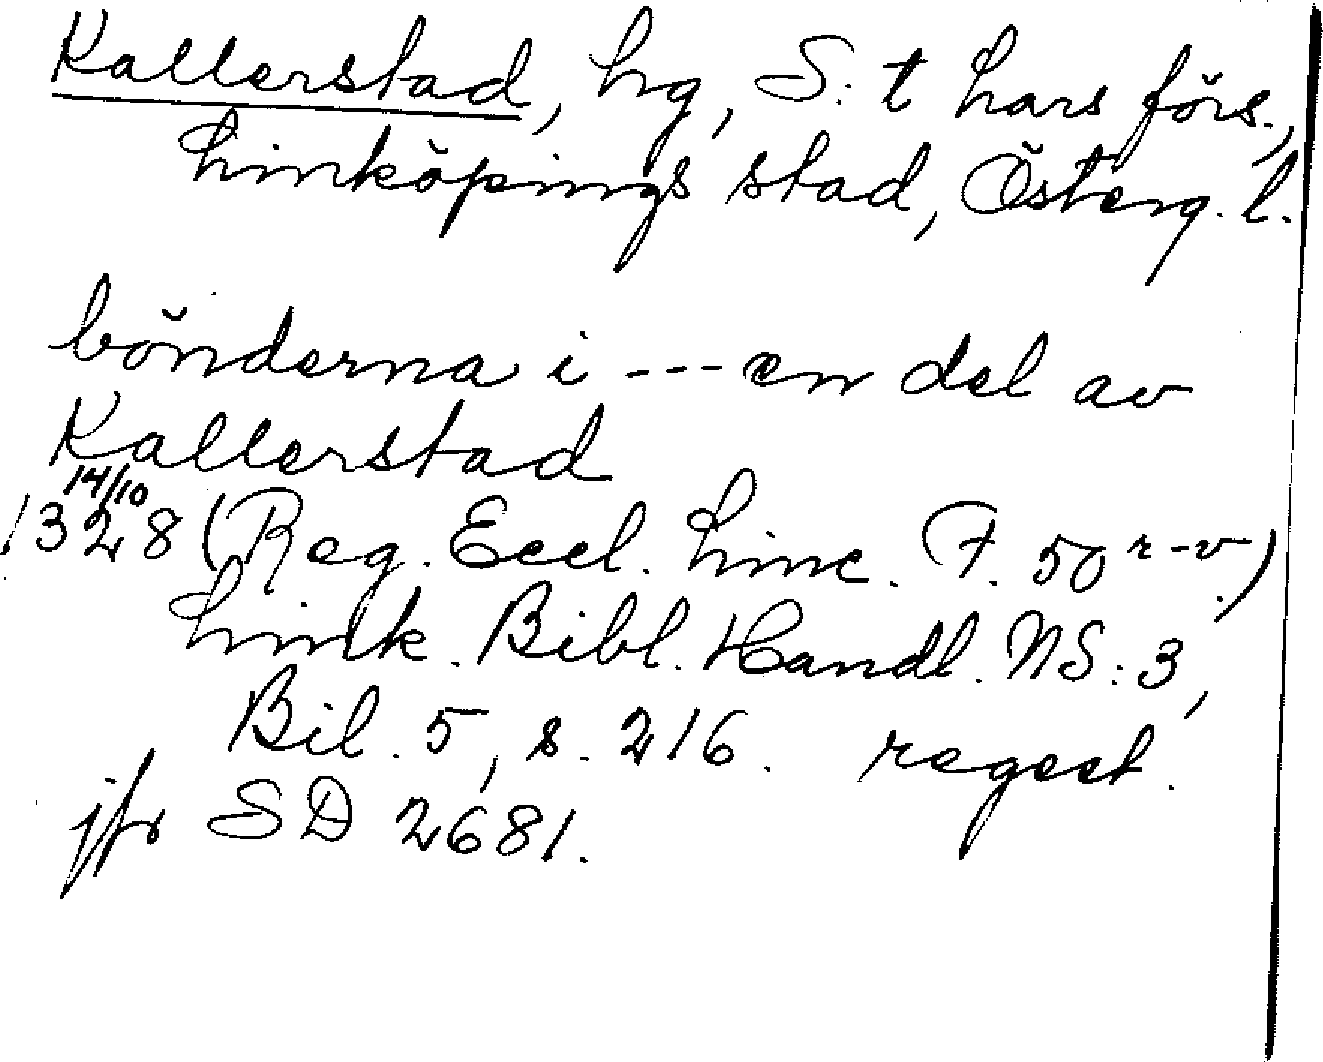 Kallerstad, hg, S:t Lars förs.,
Linköpings stad, Österg. l.
bönderna i --- en del av
Kallerstad
14/10
1328 (Reg. Eccl. Linc. F. 50 r-v.)
Link. Bibl. Handl. NS: 3,
Bil. 5, s. 216. regest.
jfr SD 2681.